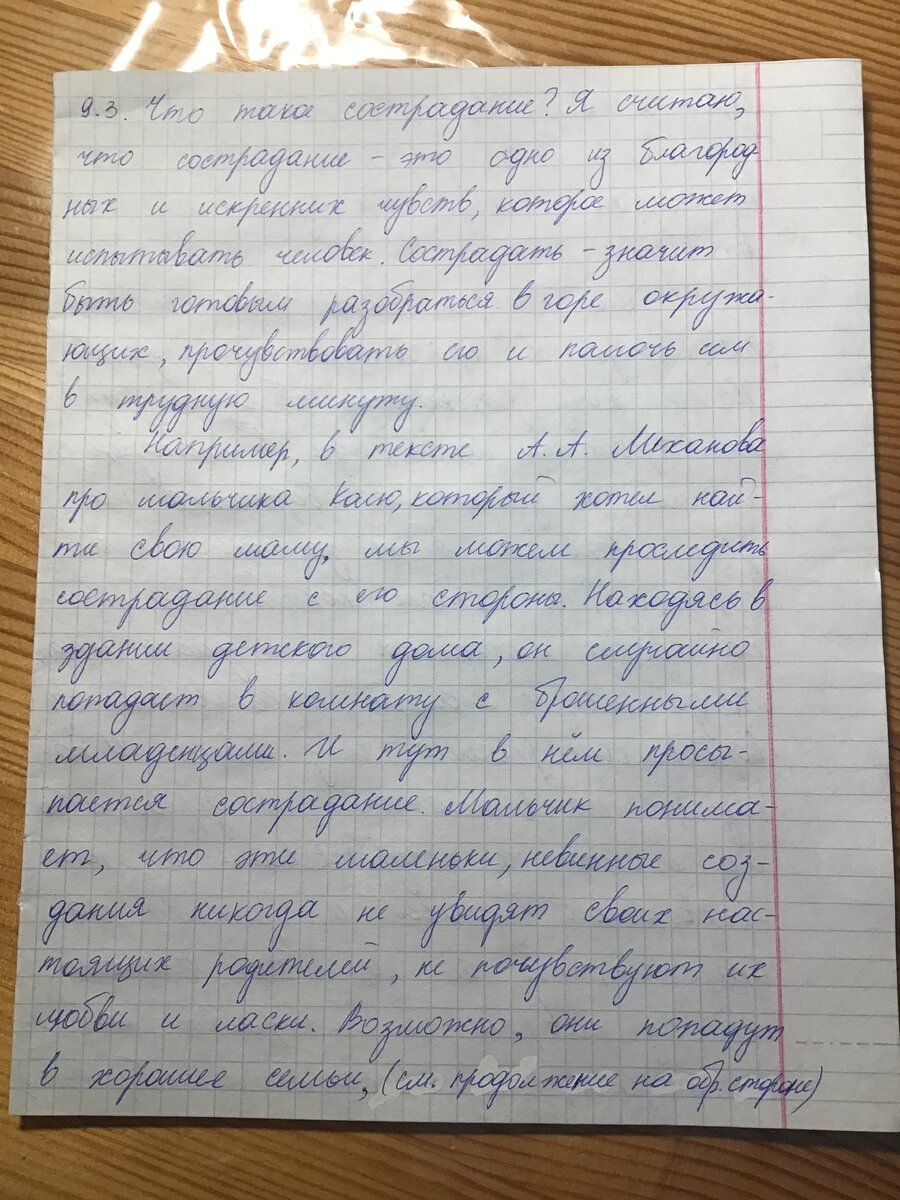 9.3. Что такое сострадание? Я считаю,
что сострадание – это одно из благород
ных и искренних чувств, которое может
испытывать человек. Сострадать – значит
быть готовым разобраться в горе окружа-
ющих, прочувствовать его и помочь им
в трудную минуту.
Например, в тексте А. А. Лиханова
про мальчика Колю, который хотел най-
ти свою маму, мы можем проследить
сострадание с его стороны. Находясь в
здании детского дома, он случайно
попадает в комнату с брошенными
младенцами. И тут в нём просы-
пается сострадание. Мальчик понима-
ет, что эти маленьки, невинные соз-
дания никогда не увидят своих нас-
тоящих родителей, не почувствуют их
любви и ласки. Возможно, они попадут
в хорошие семьи, (см. продолжение на обр. стороне)